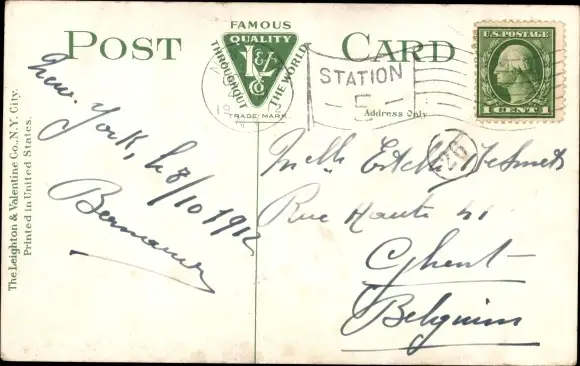 POST CARD
FAMOUS
QUALITY
THROUGHOUT THE WORLD
L&V Co
TRADE-MARK
STATION
5
Address Only
U.S. POSTAGE
1 CENT 1
The Leighton & Valentine Co., N.Y. City.
Printed in United States.
New-York, le 8/10 1912
Melle Estelle De Smet
Rue Haute 41
Ghent-
Belgium